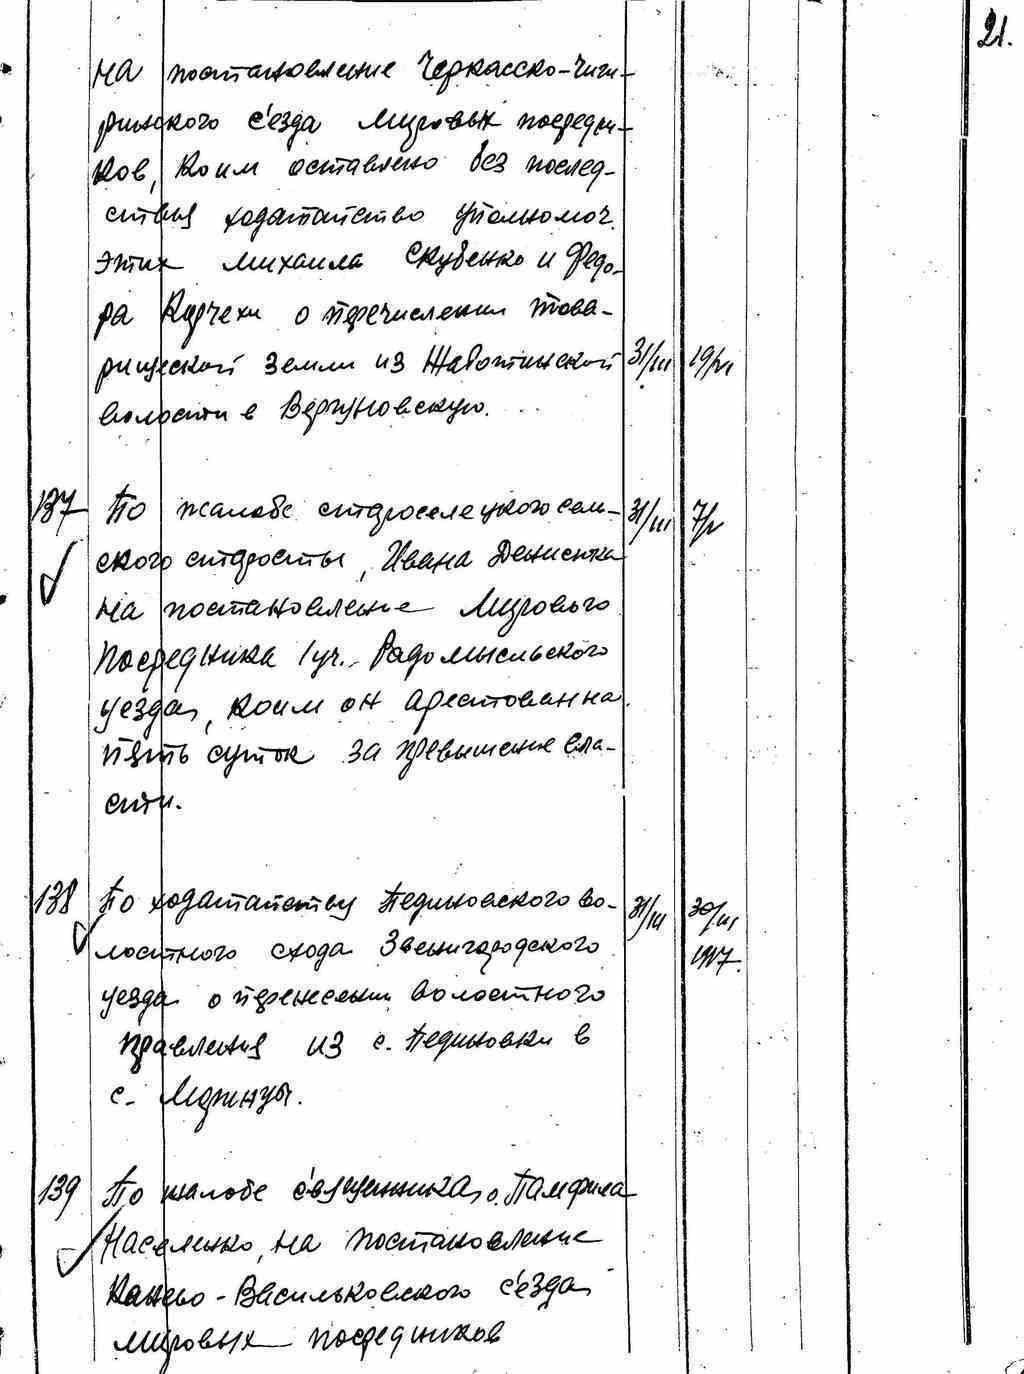 21.
на постановление Черкасско-Чиги-
ринского с'езда Мировых посредни-
ков, коим оставлено без послед-
ствия ходатайство уполномоч.
этих Михаила Скубенко и Федо-
ра Кирчехи о перечислении това-
рищеской земли из Жаботинской 31/III 19/VI
волости в Вергуновскую.
137 По жалобе староселецкого сель- 31/III 7/V
ского старосты, Ивана Денисенка
на постановление Мирового
Посредника 1 уч. Радомысльского
уезда, коим он арестован на
пять суток за превышение вла-
сти.
138 По ходатайству Пединовского во- 31/III 30/III
лостного схода Звенигородского 1917.
уезда о перенесении волостного
правления из с. Пединовки в
с. Моринцы.
139 По жалобе священника, о. Памфила
Населенко, на постановление
Канево-Васильковского с'езда
мировых посредников